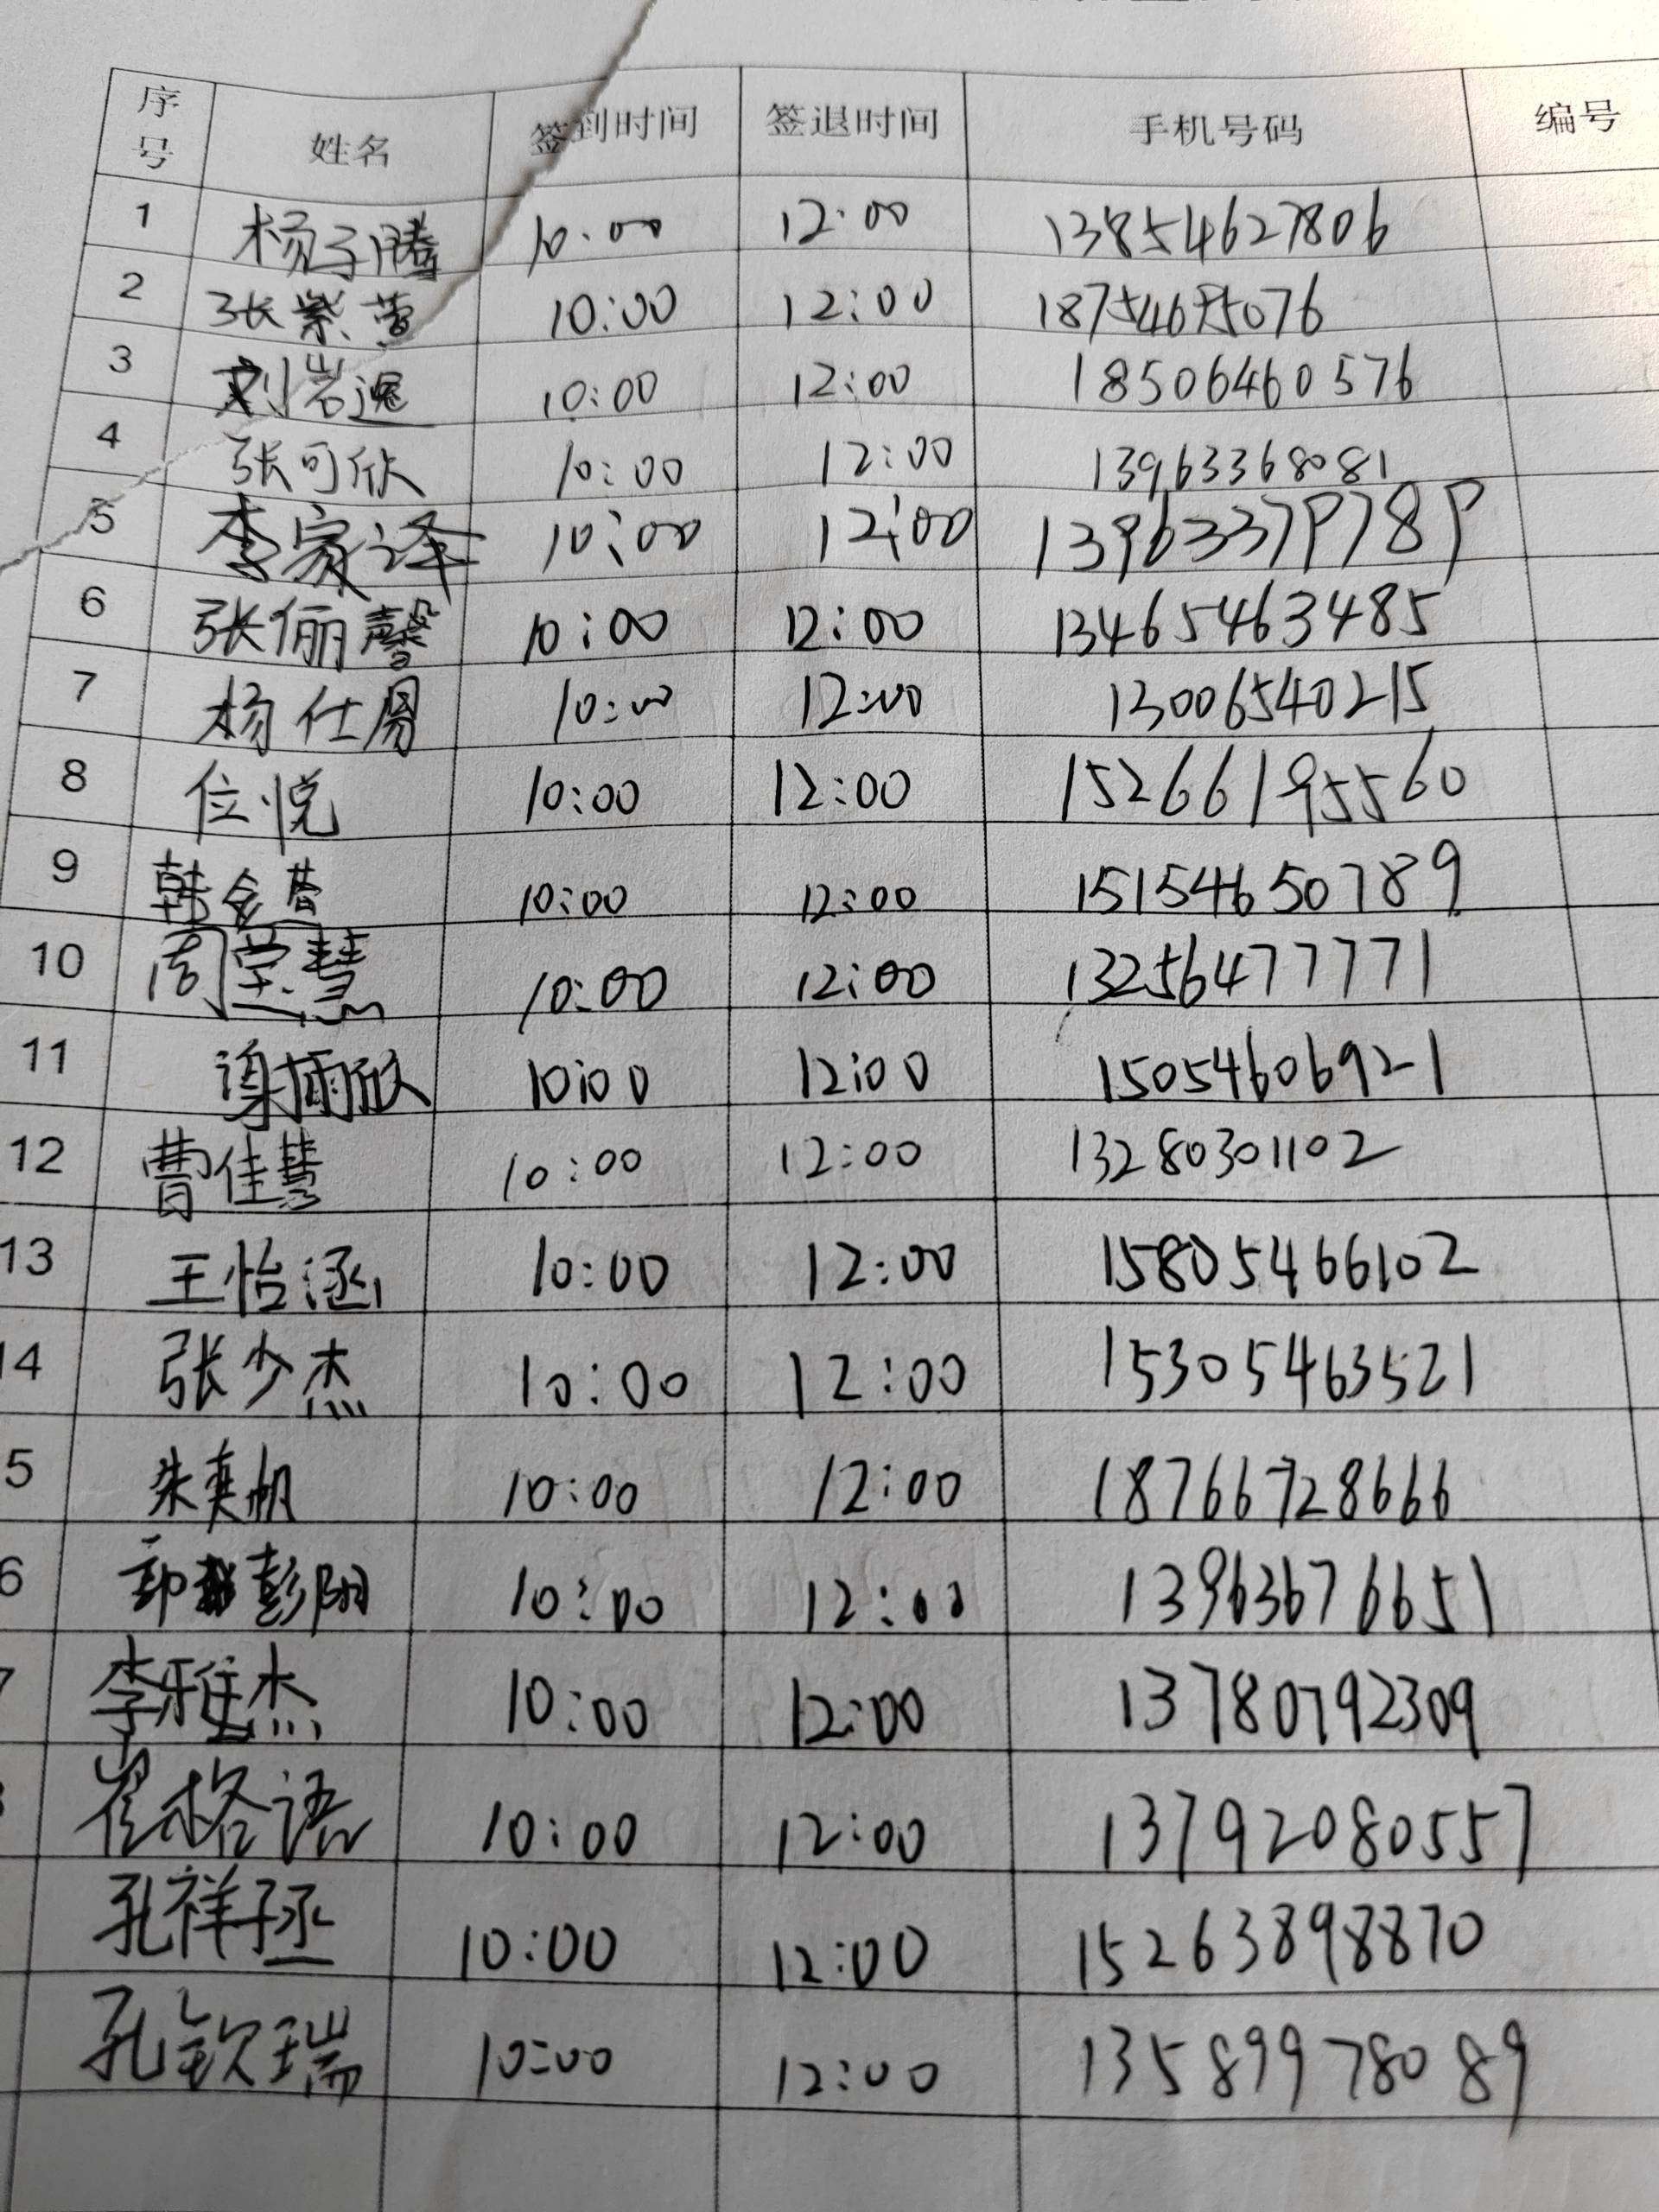 序号 姓名 签到时间 签退时间 手机号码 编号
1 杨子腾 10:00 12:00 13854627806
2 张紫萱 10:00 12:00 18754695076
3 刘岩逸 10:00 12:00 18506460576
4 张可欣 10:00 12:00 13963368081
5 李家泽 10:00 12:00 13963379789
6 张俪馨 10:00 12:00 13465463485
7 杨仕 10:00 12:00 13006540215
8 位悦 10:00 12:00 15266195560
9 韩 10:00 12:00 15154650789
10 周莹慧 10:00 12:00 13256477771
11 梁栭欣 10:00 12:00 15054606921
12 曹佳慧 10:00 12:00 13280301102
13 王怡涵 10:00 12:00 15805466102
14 张少杰 10:00 12:00 15305463521
5 朱奕帆 10:00 12:00 18766728666
6 彭阳 10:00 12:00 13963676651
7 李雅杰 10:00 12:00 13780792309
崔格语 10:00 12:00 13792080557
孔祥丞 10:00 12:00 15263898870
孔钦瑞 10:00 12:00 13589978089